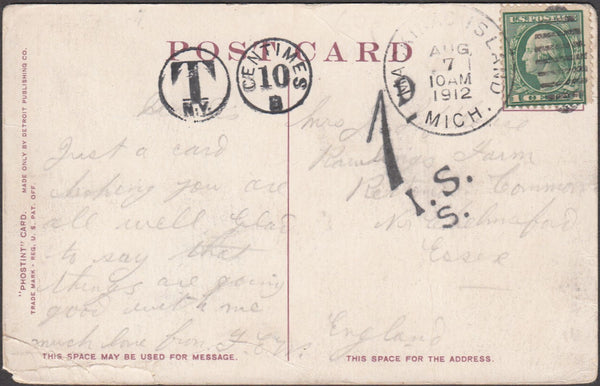 POST CARD
U.S. POSTAGE
1 CENT
MACKINAC ISLAND
AUG
7
10AM
1912
MICH.
T
N.Y.
CENTIMES
10
B
1
I.S.
S.
"PHOSTINT" CARD. MADE ONLY BY DETROIT PUBLISHING CO.
TRADE MARK - REG. U.S. PAT. OFF.
Just a card
hoping you are
all well Glad
to say that
things are going
good with me
much love from
THIS SPACE MAY BE USED FOR MESSAGE.
Mrs
Rawlings Farm
Common
Nr Chelmsford
Essex
England
THIS SPACE FOR THE ADDRESS.